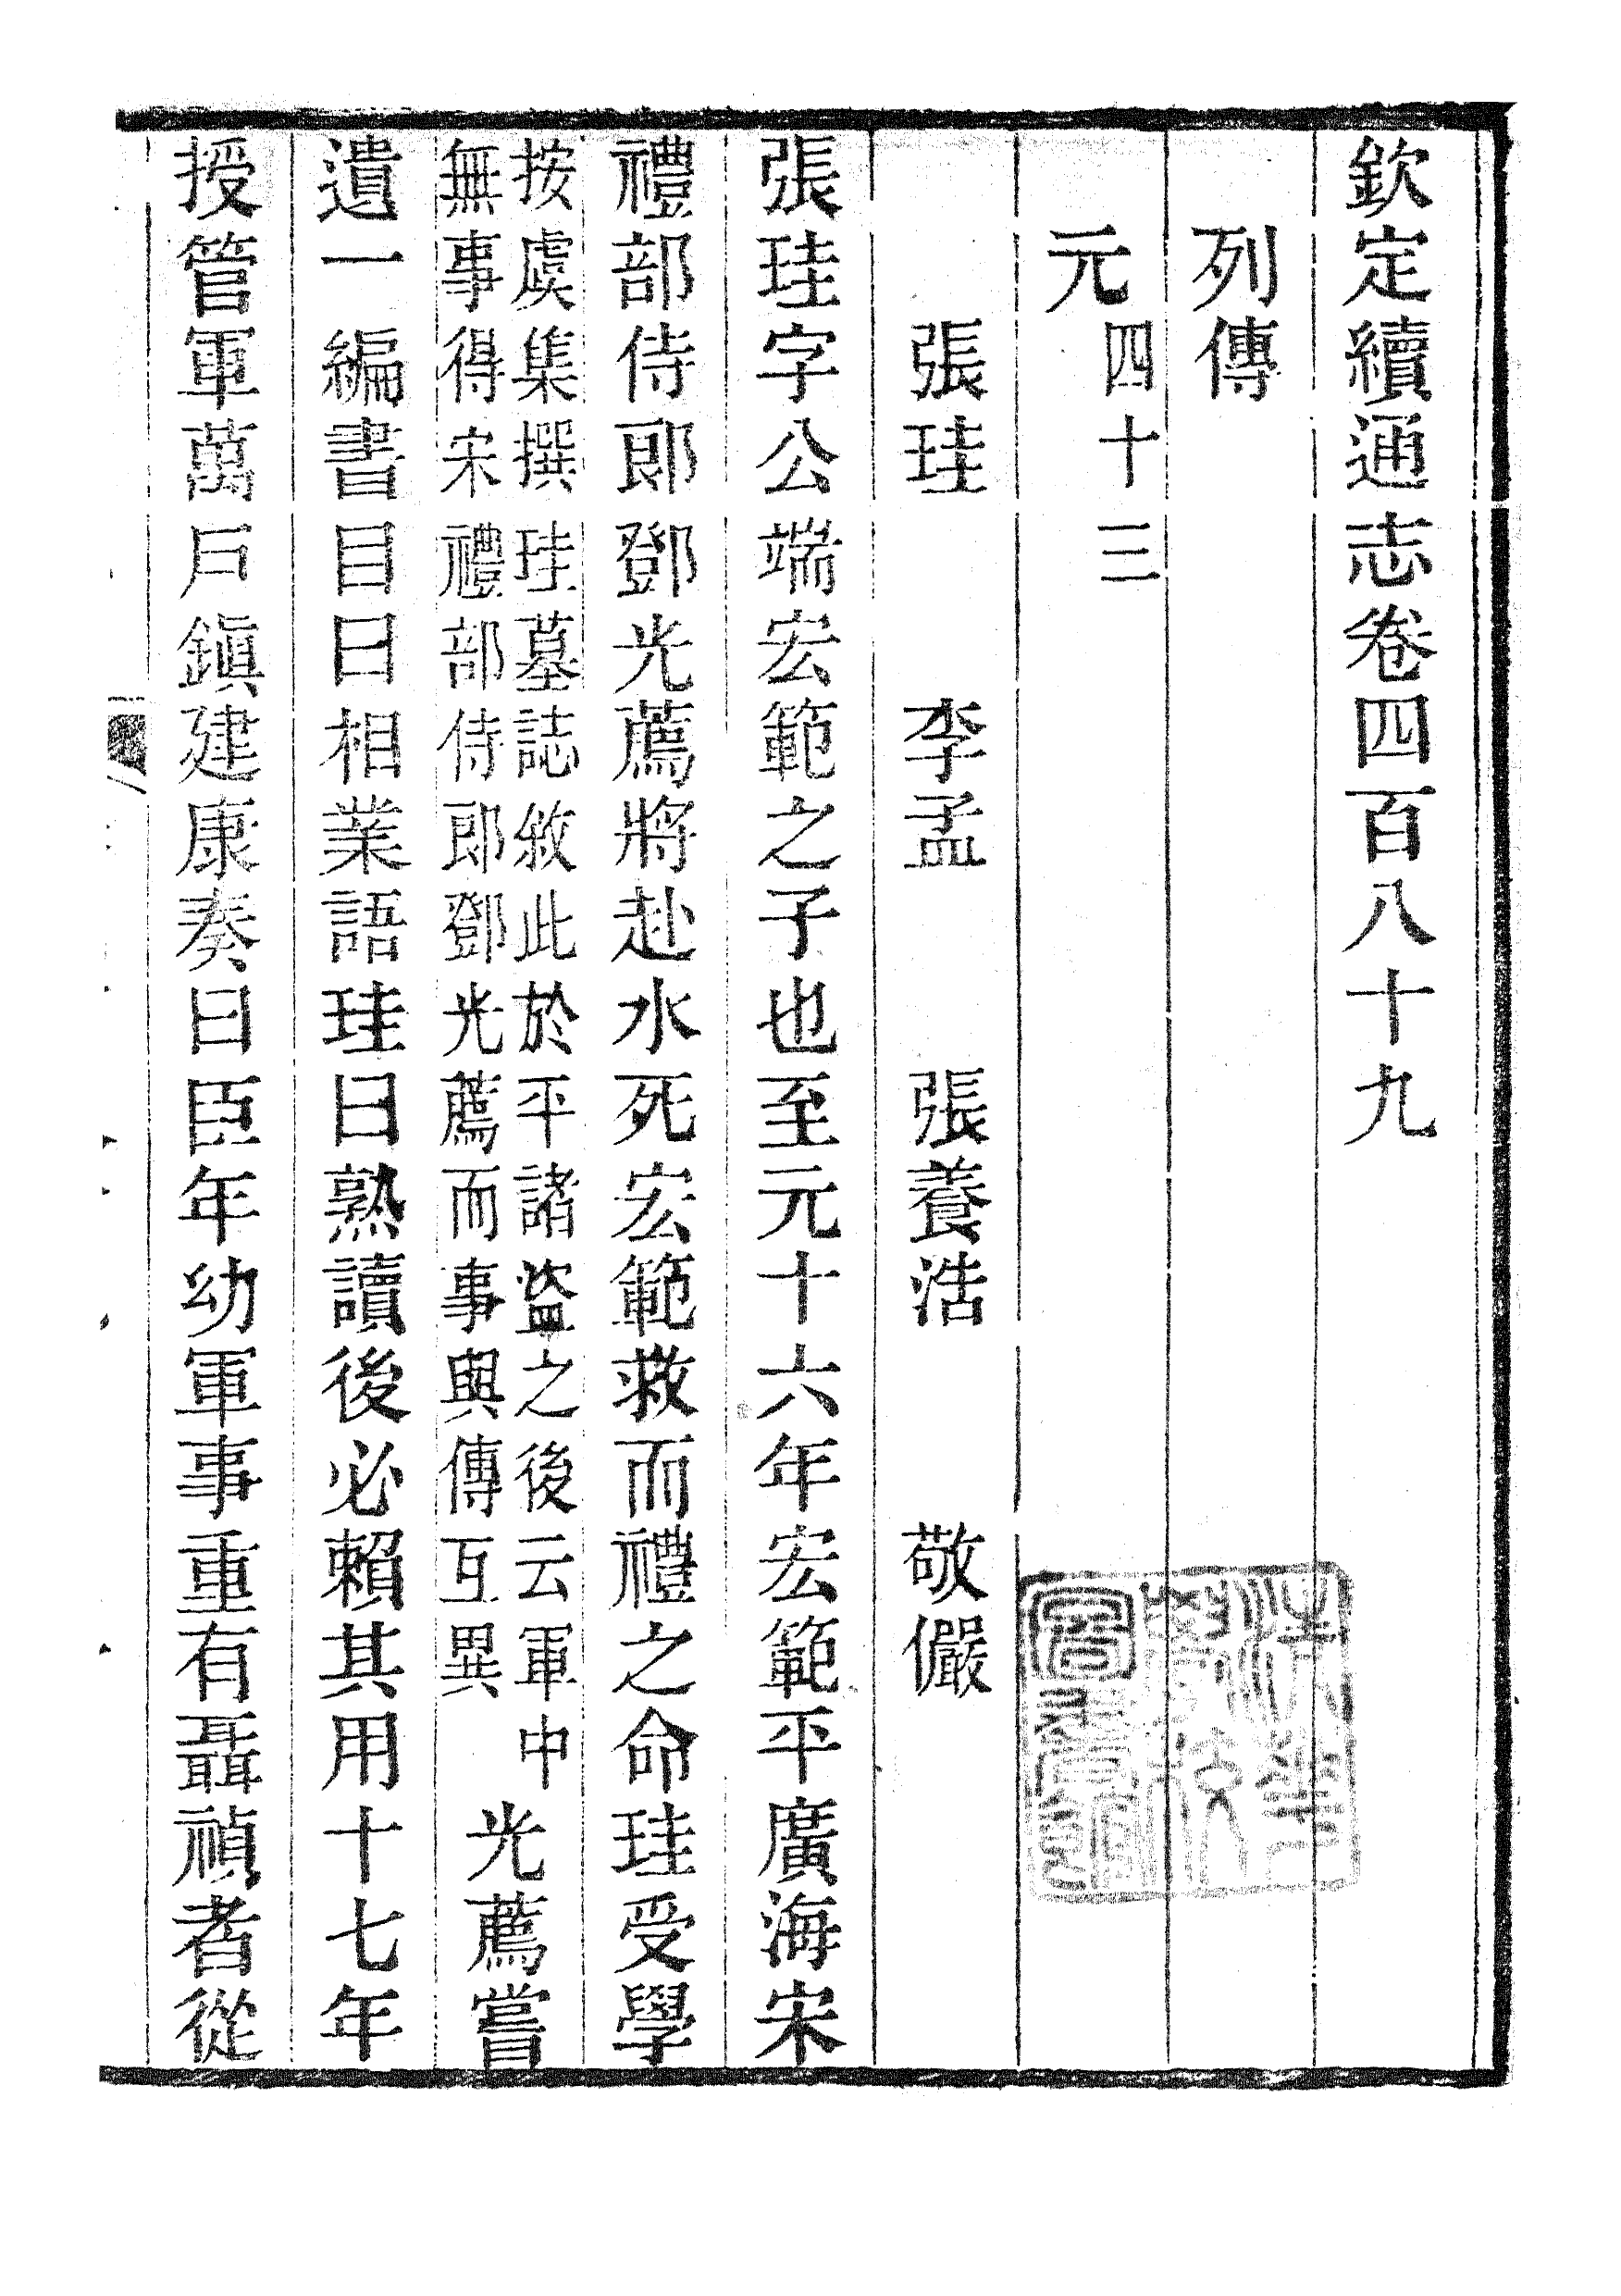 欽定續通志卷四百八十九
列傳
元四十三
張珪 李孟 張養浩 敬儼
張珪字公端宏範之子也至元十六年宏範平廣海宋
禮部侍郎鄧光薦將赴水死宏範救而禮之命珪受學
按虞集撰珪墓誌敘此於平諸盜之後云軍中
無事得宋禮部侍郎鄧光薦而事與傳互異
光薦嘗
遺一編書目曰相業語珪曰熟讀後必賴其用十七年
授管軍萬戶鎭建康奏曰臣年幼軍事重有聶禎者從